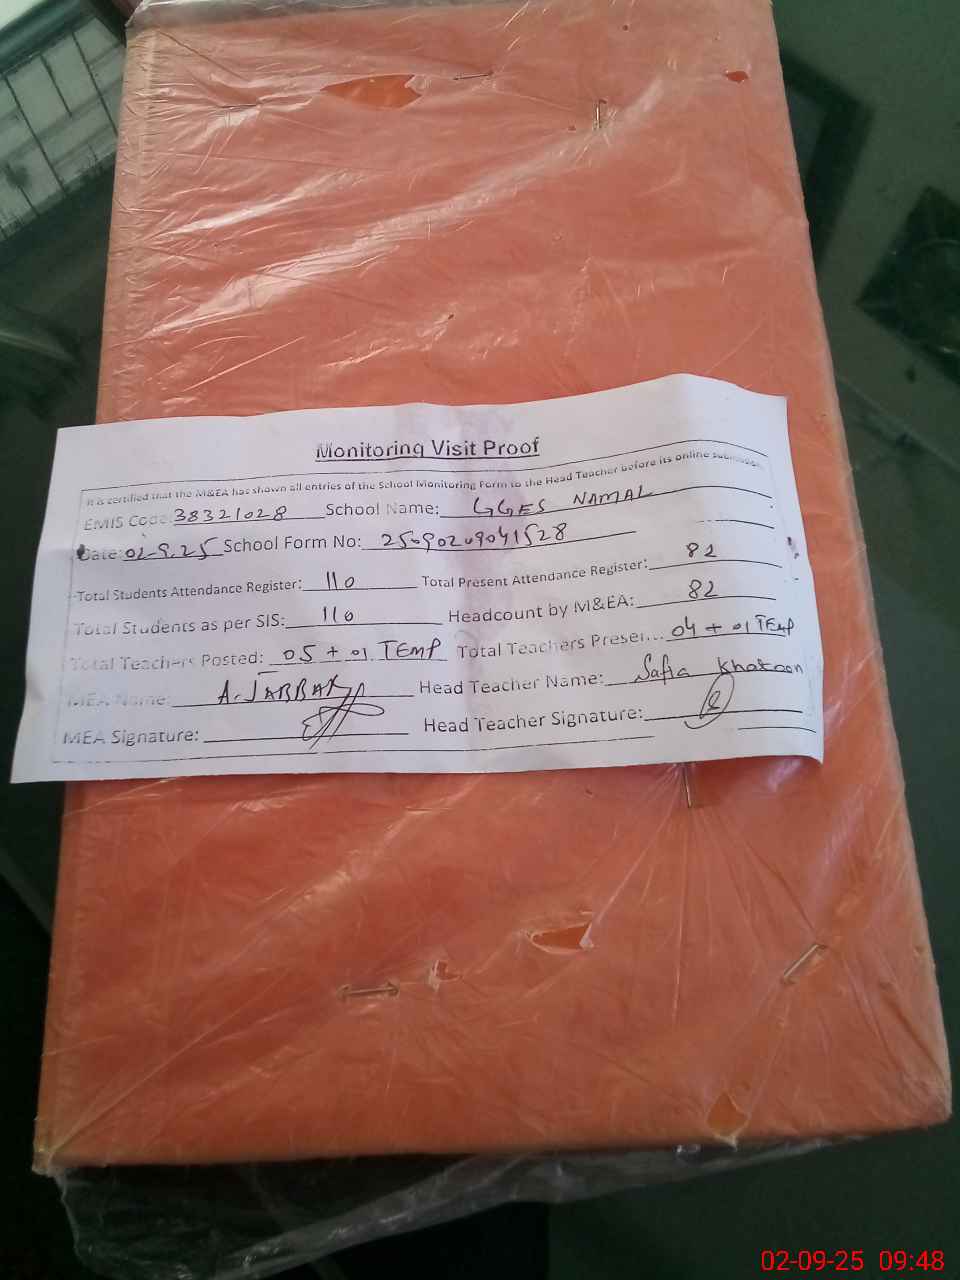 Monitoring Visit Proof
It is certified that the M&EA has shown all entries of the School Monitoring Form to the Head Teacher before its online submission
EMIS Code: 38321028 School Name: GGES NAMAL
Date: 02-9.25 School Form No: 25090209041528
Total Students Attendance Register: 110 Total Present Attendance Register: 82
Total Students as per SIS: 110 Headcount by M&EA: 82
Total Teachers Posted: 05 + 01 TEMP Total Teachers Present: 04 + 01 TEMP
MEA Name: A. JABBAR Head Teacher Name: Safia Khatoon
MEA Signature: Head Teacher Signature:
02-09-25 09:48